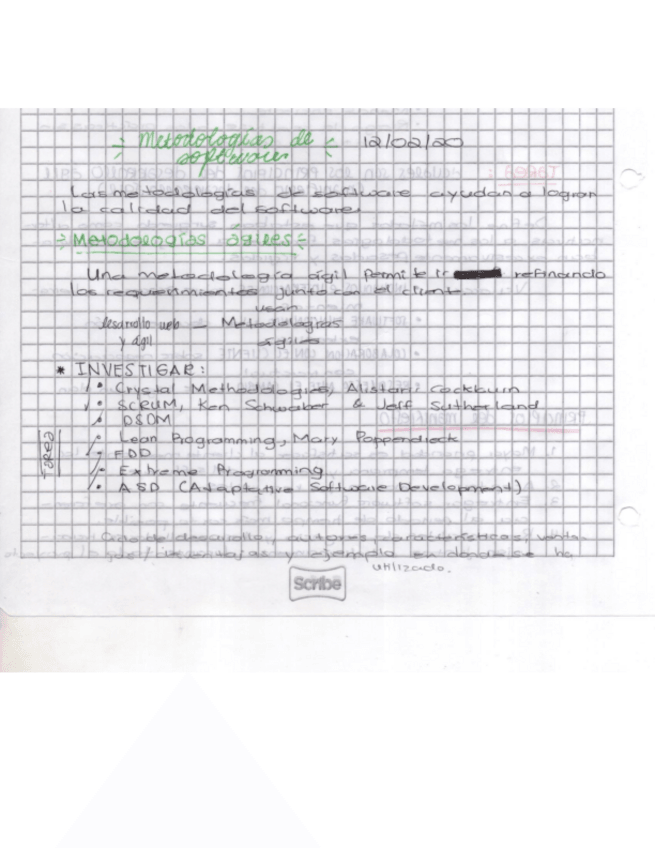 Metodologías de 12/02/20
software
Las metodologías de software ayudan a lograr
la calidad del software.
Metodologías ágiles
Una metodología ágil permite ir refinando
los requerimientos junto con el cliente
usan
desarrollo web — Metodologías
y ágil ágiles
* INVESTIGAR:
• Crystal Methodologies, Alistair Cockburn
• SCRUM, Ken Schwaber & Jeff Sutherland
• DSDM
• Lean Programming, Mary Poppendieck
• FDD
• Extreme Programming
• ASD (Adaptative Software Development)
TAREA
de desarrollo, autores, características,
y ejemplo en donde se ha
utilizado.
Scribe